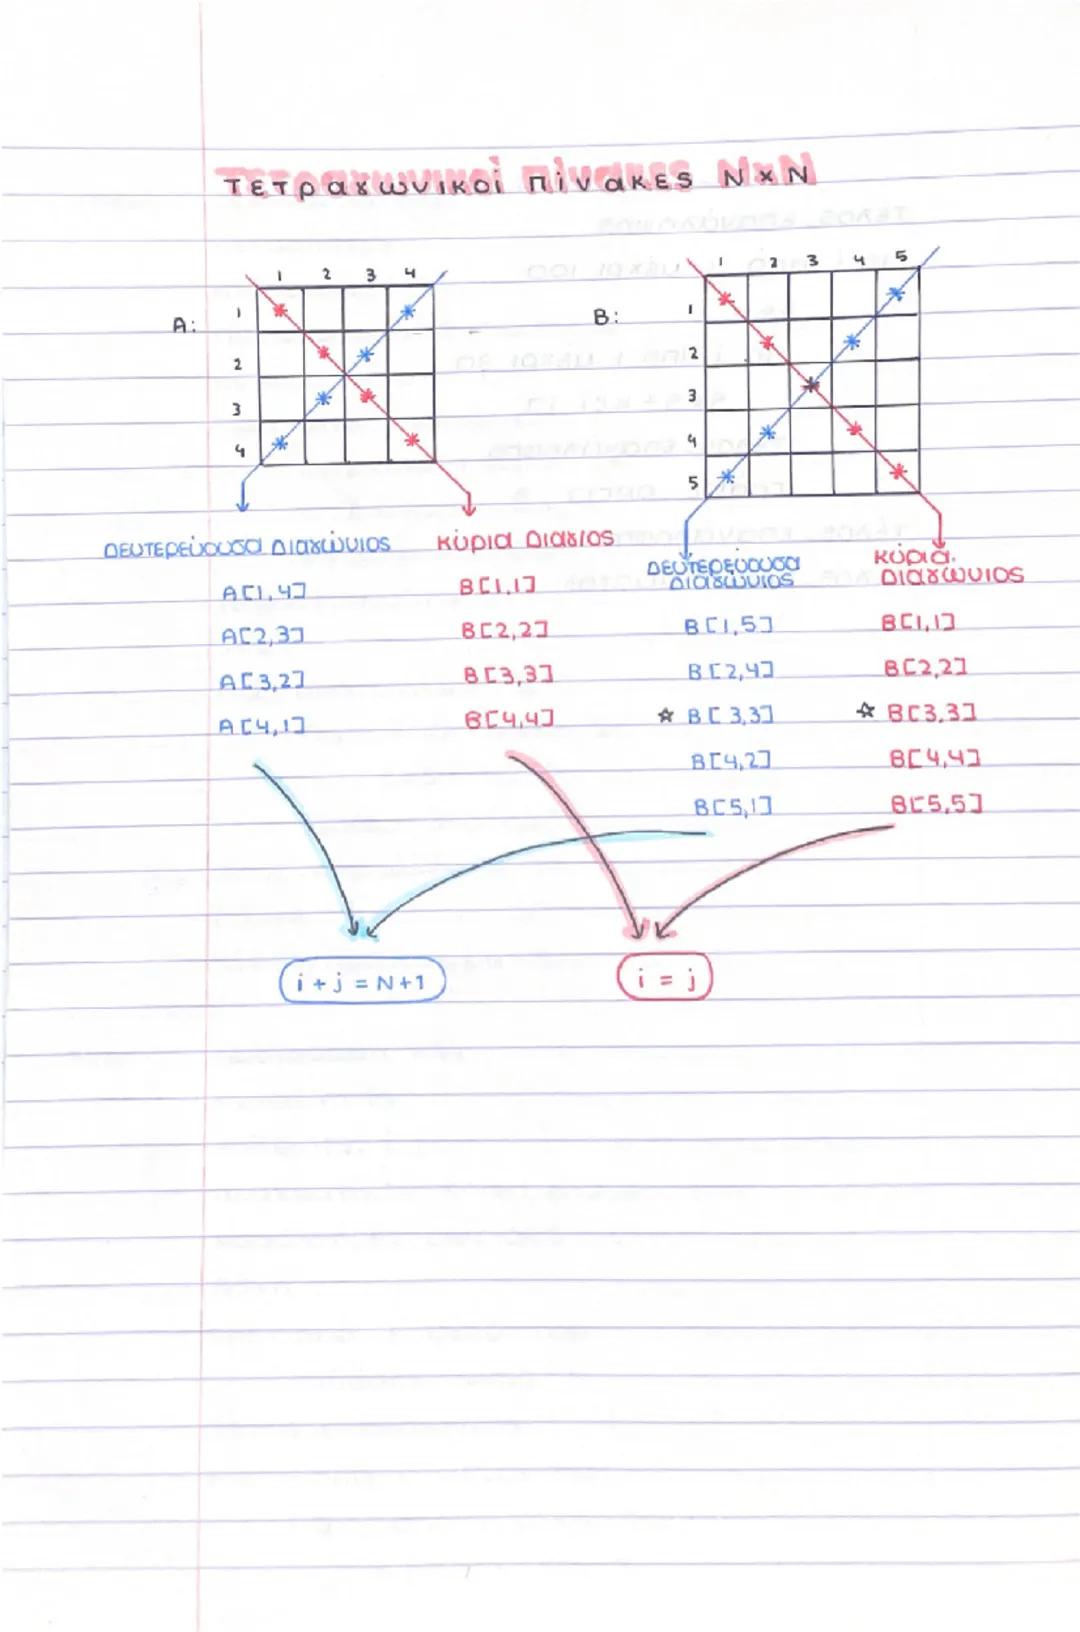 Τετραγωνικοί πίνακες Ν×Ν
1 2 3 4
A:
1
2
3
4
1 2 3 4 5
B:
1
2
3
4
5
Δευτερεύουσα Διαγώνιος
Κύρια Διαγιος
Δευτερεύουσα Διαγώνιος
Κύρια Διαγώνιος
A[1,4]
A[2,3]
A[3,2]
A[4,1]
B[1,1]
B[2,2]
B[3,3]
B[4,4]
B[1,5]
B[2,4]
☆ B[3,3]
B[4,2]
B[5,1]
B[1,1]
B[2,2]
☆ B[3,3]
B[4,4]
B[5,5]
i + j = N+1
i = j